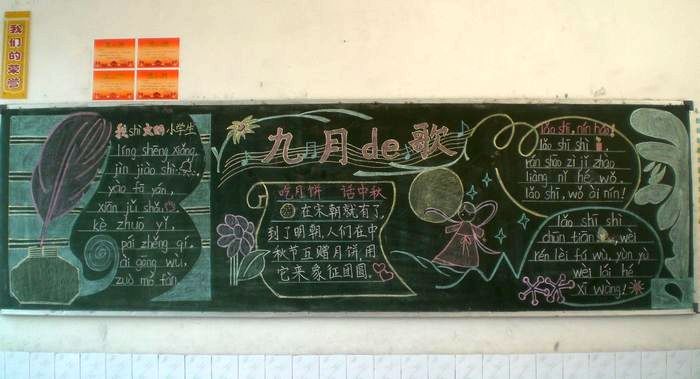 我们的荣誉
我shì文明小学生
líng shēng xiǎng,
jìn jiào shì.
yào fā yán,
xiān jǔ shǒu.
kè zhuō yǐ,
pái zhěng qí,
ài gōng wù,
zuò mó fàn.
九月de歌
吃月饼 话中秋
在宋朝就有了,
到了明朝,人们在中
秋节互赠月饼,用
它来象征团圆。
lǎo shī, nín hǎo!
lǎo shī shì
rán shāo zì jǐ zhào
liàng nǐ hé wǒ.
lǎo shī, wǒ ài nín!
lǎo shī shì
chūn tiān wèi
rén lèi fú wù, yùn yù
wèi lái hé
xī wàng!